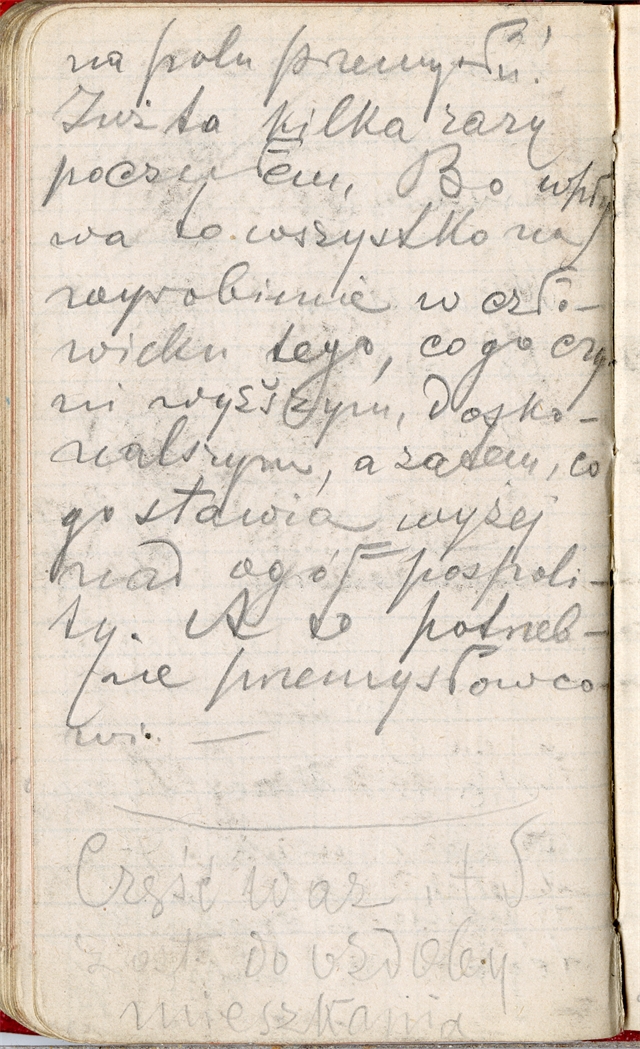 na polu przemysłu!
Już to kilka razy
poczułem, Bo wpły
wa to wszystko na
wyrobienie w czło-
wieku tego, co go czy-
ni wyższym, dosko-
nalszym, a zatem, co
go stawia wyżej
nad ogół pospoli-
ty. A to potrzeb-
ne przemysłowco-
wi. —
Część waz
do ozdoby
mieszkania